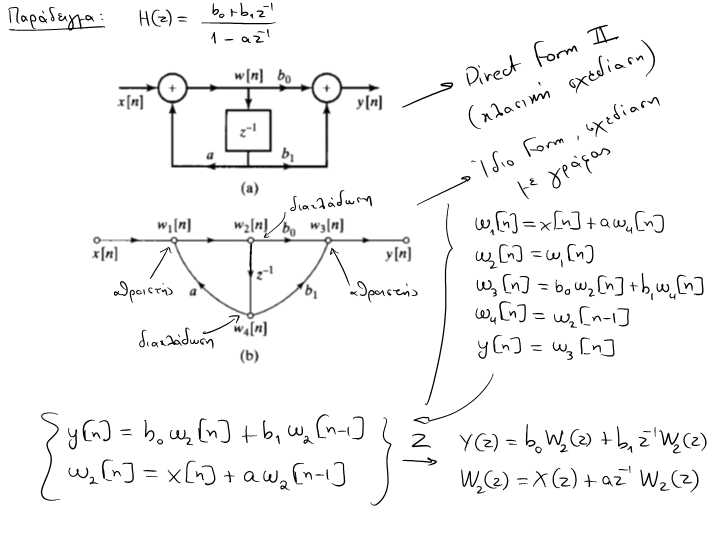 Παράδειγμα: H(z) = (b₀ + b₁z⁻¹) / (1 - az⁻¹)
w[n] b₀
x[n] + + y[n]
z⁻¹
a b₁
(a)
Direct Form II
(κλασική σχεδίαση)
Ίδιο Form, σχεδίαση
με γράφους
διακλάδωση
w₁[n] w₂[n] b₀ w₃[n]
x[n] y[n]
z⁻¹
αθροιστής a b₁ αθροιστής
διακλάδωση w₄[n]
(b)
w₁[n] = x[n] + aw₄[n]
w₂[n] = w₁[n]
w₃[n] = b₀w₂[n] + b₁w₄[n]
w₄[n] = w₂[n-1]
y[n] = w₃[n]
y[n] = b₀w₂[n] + b₁w₂[n-1]
w₂[n] = x[n] + aw₂[n-1]
Z
Y(z) = b₀W₂(z) + b₁z⁻¹W₂(z)
W₂(z) = X(z) + az⁻¹W₂(z)